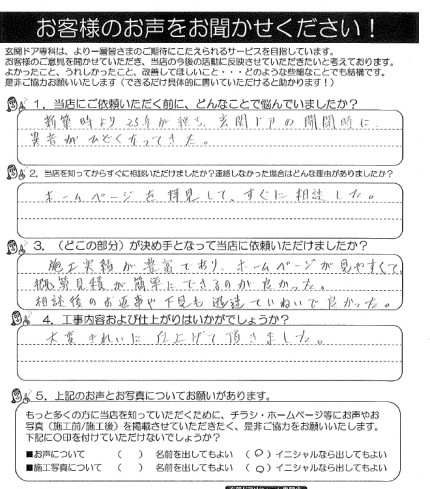 お客様のお声をお聞かせください！
玄関ドア専科は、より一層皆さまのご期待にこたえられるサービスを目指しています。
お客様のご意見を聞かせていただき、当店の今後の活動に反映させていただきたいと考えております。
よかったこと、うれしかったこと、改善してほしいこと・・・どのような些細なことでも結構です。
是非ご協力お願いします（できるだけ具体的に書いていただけると助かります！）
1．当店にご依頼いただく前に、どんなことで悩んでいましたか？
新築時より25年が経ち、玄関ドアの開閉時に
異音がひどくなってきた。
2．当店を知ってからすぐに相談いただけましたか？連絡しなかった場合はどんな理由がありましたか？
ホームページを拝見して、すぐに相談した。
3．（どこの部分）が決め手となって当店に依頼いただけましたか？
施工実績が豊富であり、ホームページが見やすくて、
概算見積が簡単にできるのが良かった。
相談後のお返事や下見も迅速ていねいで良かった。
4．工事内容および仕上がりはいかがでしょうか？
大変きれいに仕上げて頂きました。
5．上記のお声とお写真についてお願いがあります。
もっと多くの方に当店を知っていただくために、チラシ・ホームページ等にお声やお
写真（施工前/施工後）を掲載させていただきたく、是非ご協力をお願いいたします。
下記に〇印を付けていただけないでしょうか？
■お声について （ ） 名前を出してもよい （〇）イニシャルなら出してもよい
■施工写真について （ ） 名前を出してもよい （〇）イニシャルなら出してもよい